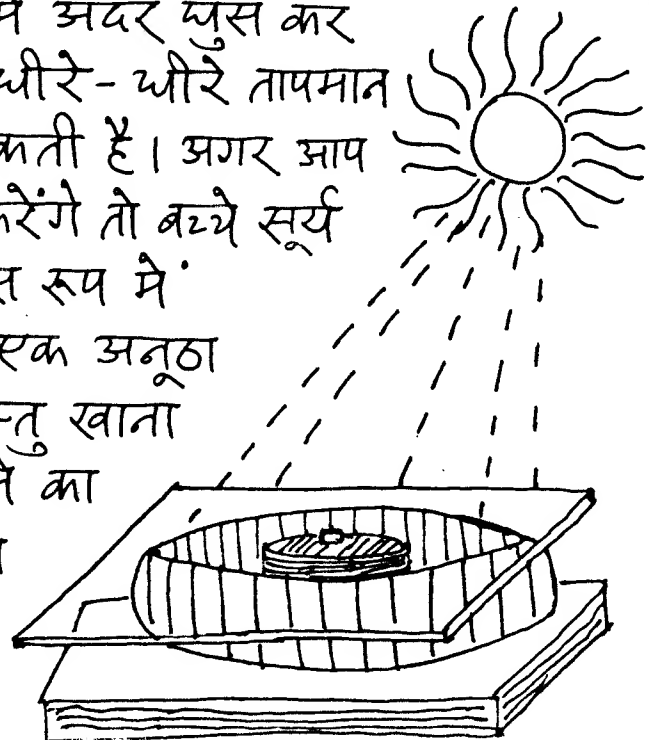 अंदर घुस कर
धीरे-धीरे तापमान
है। अगर आप
तो बच्चे सूर्य
रूप में
एक अनूठा
खाना
का